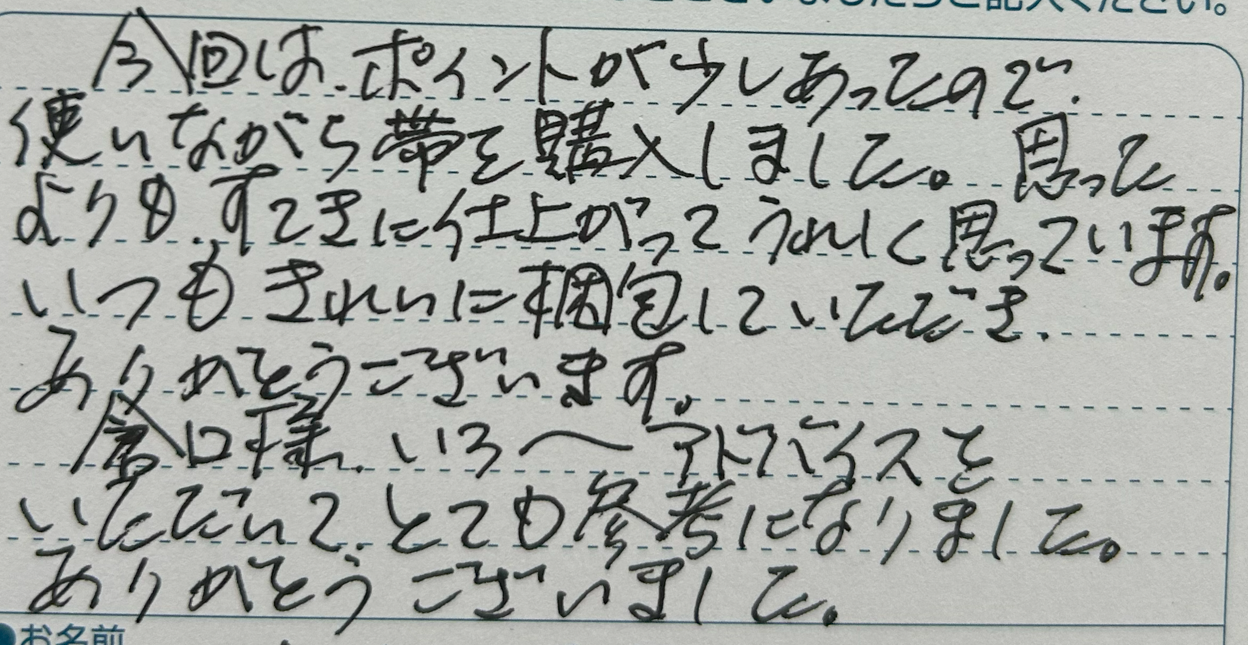 ございましたらご記入ください。
今回は、ポイントが少しあったので、
使いながら帯を購入しました。思った
よりも、すてきに仕上がってうれしく思っています。
いつもきれいに梱包していただき、
ありがとうございます。
倉口様、いろ〜アドバイスを
いただいて、とても参考になりました。
ありがとうございました。
●お名前